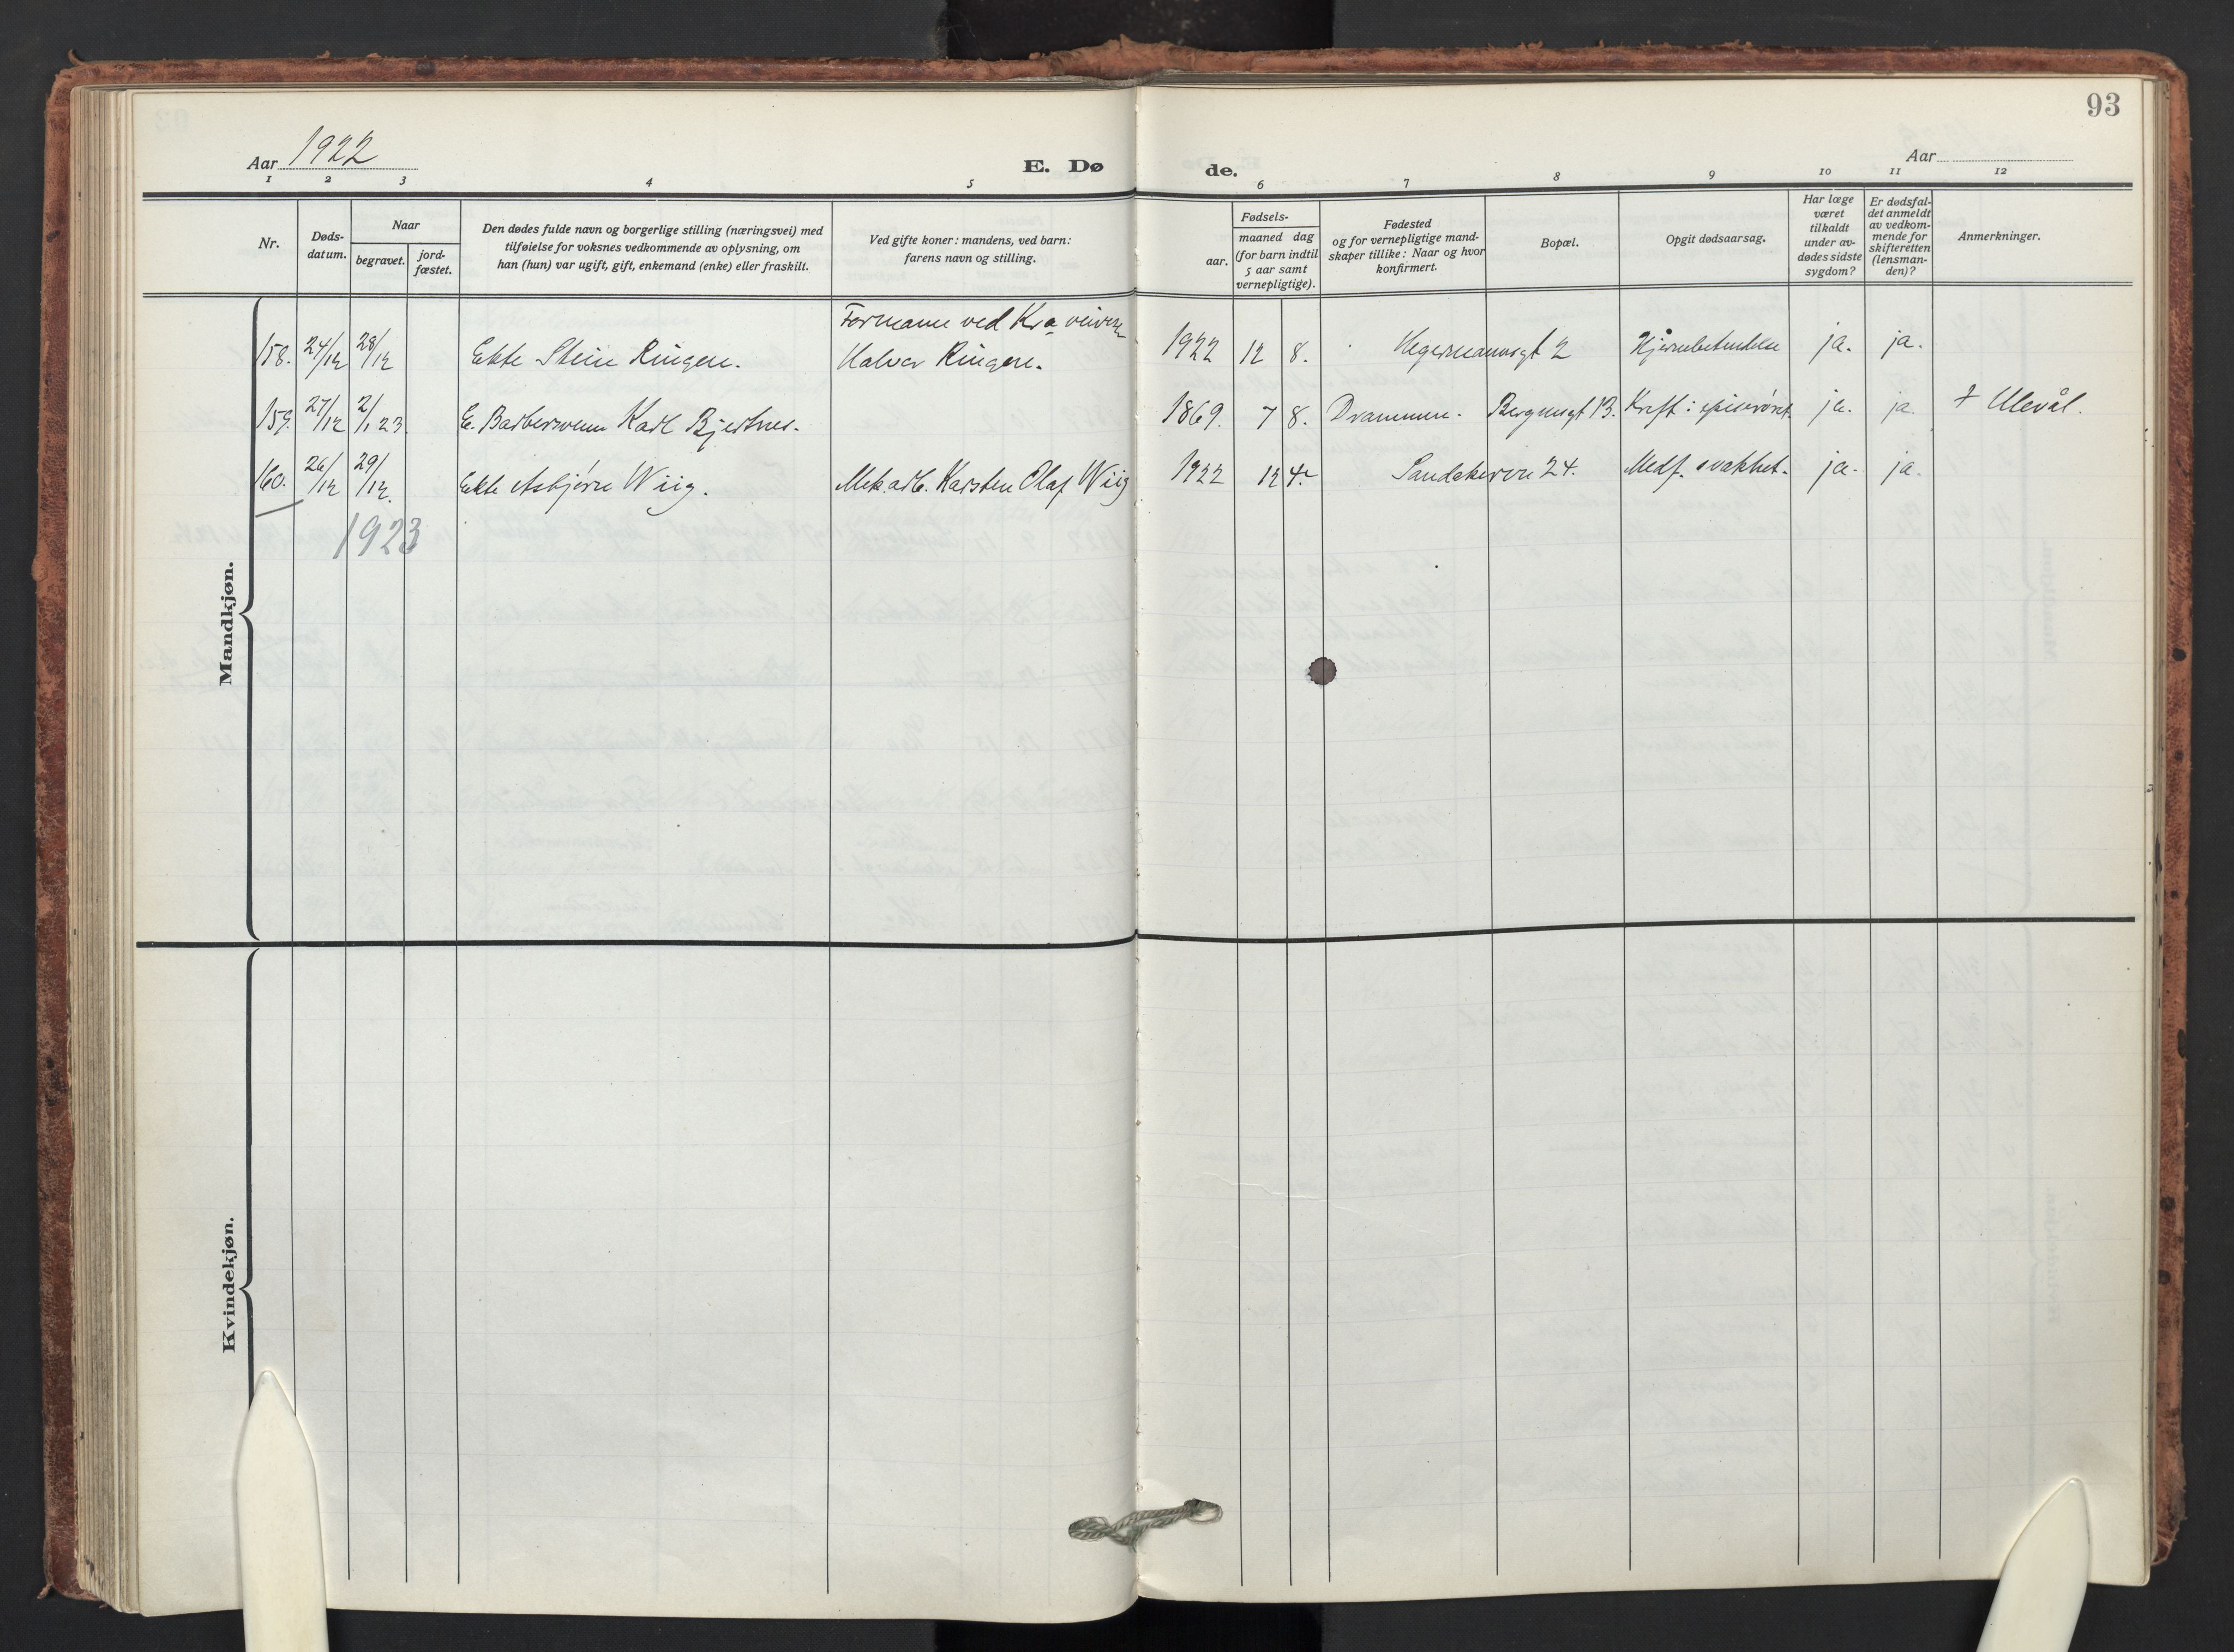 93
Aar 1922
E. Dø
de.
Aar
1 2 3 4 5 6 7 8 9 10 11 12
Nr.
Døds-
datum.
Naar
begravet.
jord-
fæstet.
Den dødes fulde navn og borgerlige stilling (næringsvei) med
tilføielse for voksnes vedkommende av oplysning, om
han (hun) var ugift, gift, enkemand (enke) eller fraskilt.
Ved gifte koner: mandens, ved barn:
farens navn og stilling.
Fødsels-
aar.
maaned dag
(for barn indtil
5 aar samt
vernepligtige).
Fødested
og for vernepligtige mand-
skaper tillike: Naar og hvor
konfirmert.
Bopæl.
Opgit dødsaarsag.
Har læge
været
tilkaldt
under av-
dødes sidste
sygdom?
Er dødsfal-
det anmeldt
av vedkom-
mende for
skifteretten
(lensman-
den)?
Anmerkninger.
Mandkjøn.
Formann ved Kra veivesen
158. 24/12 28/12 Ekte Stein Ringen. Halvor Ringen. 1922 12 8. Hegermannsgt 2 Hjernebetendelse ja. ja.
159. 27/12 2/1 23. E. Barbersvenn Karl Bjertnes. 1869. 7 8. Drammen. Bergensgt 13. Kreft i spiserøret. ja. ja. † Ulevål.
160. 26/12 29/12. Ekte Asbjørn Wiig. Mek. arb. Karsten Olaf Wiig 1922 12 4. Sandakerveien 24. Medf. svakhet. ja. ja.
1923
Kvindekjøn.